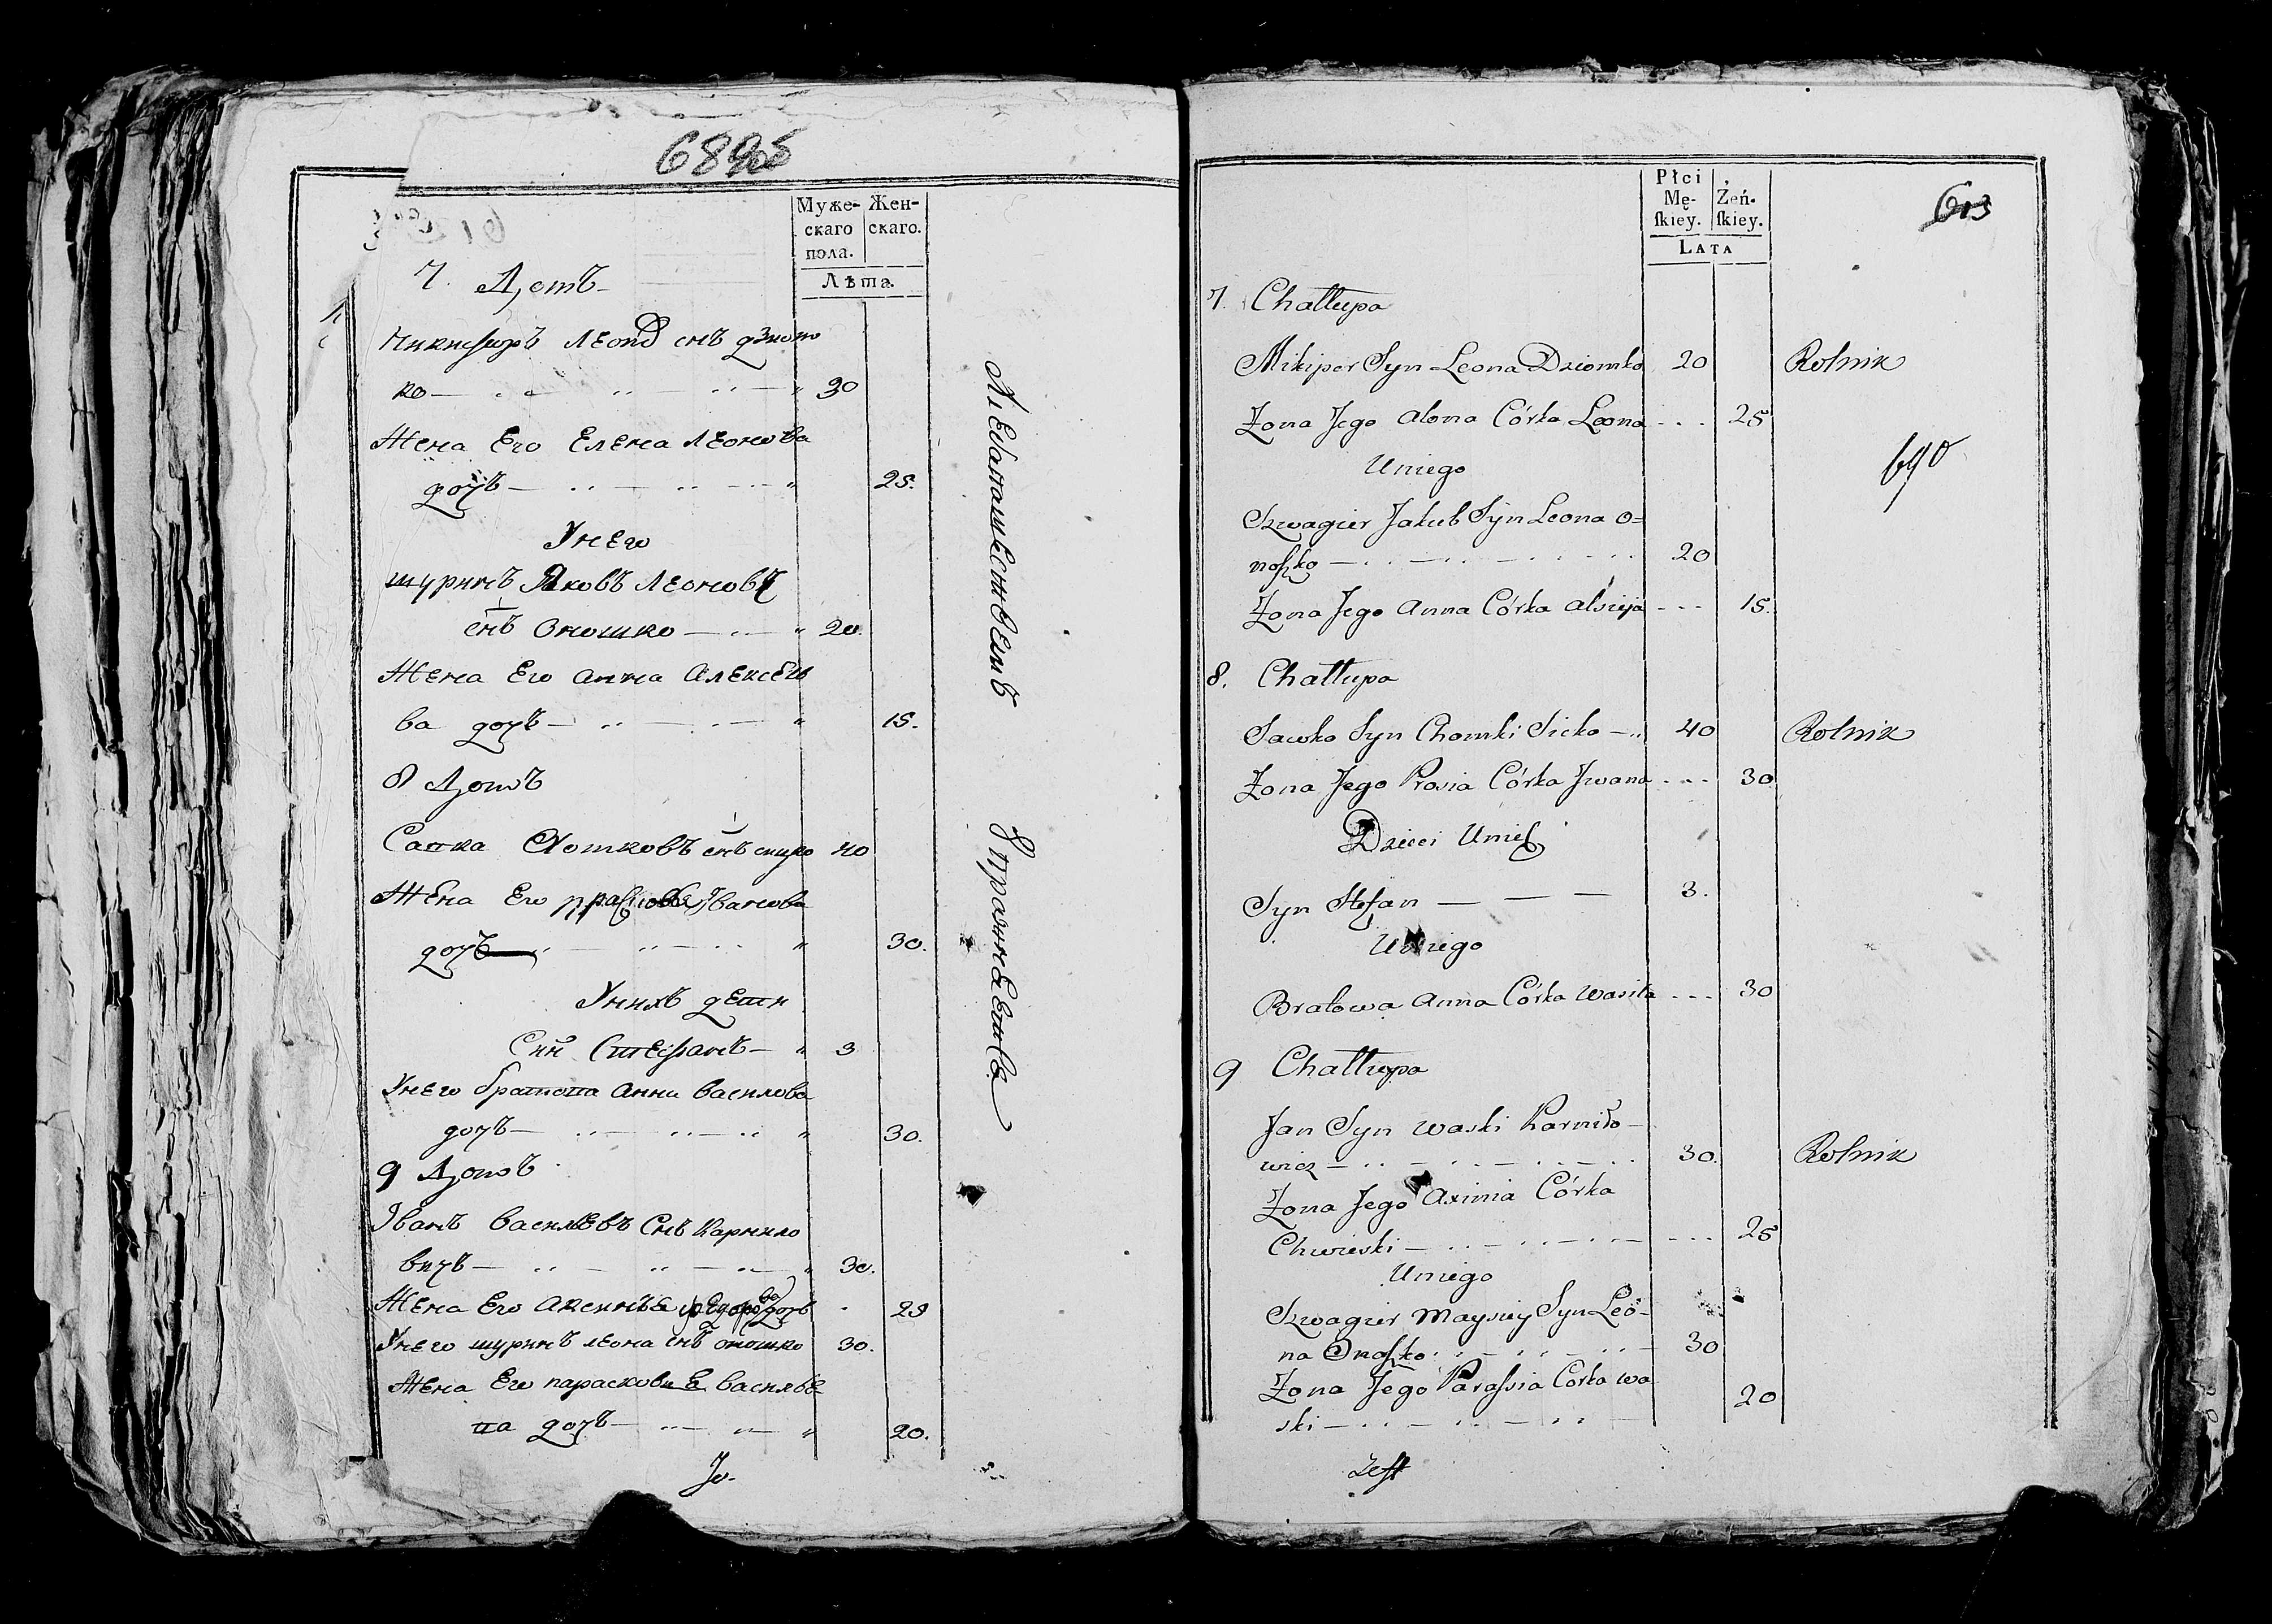 Муже-
скаго
пола.
Жен-
скаго.
Лѣта.
7. Домъ
Никифоръ Леона снъ дзюм
ко 30
Жена Его Елена Леонова
дочь 25.
Унего
шуринъ Яковъ Леоновъ
снъ Оношко 20.
Жена Его анна Алексѣе
ва дочь 15.
8 Домъ
Савка Хомковъ снъ сицко 40
Жена Его Иванова
дочь 30.
Унихъ дети
Снъ Стефанъ 3
Унего братова анна василова
дочь 30.
9 Домъ
Иванъ васильевъ Снъ Карнило
вичъ 30.
Жена Его аксинья дочь 29
Унего шуринъ леона снъ оношко 30.
Жена Его парасковия василье
ва дочь 20.
Płci
Mę-
ſkiey.
Żeń-
ſkiey.
LATA
613
7. Chałlupa
Mikiper Syn Leona Dziomko 20 Rolnik
Zona Jego alona Córka Leona 25
Uniego
690
Szwagier Jakub Syn Leona O=
noszko 20
Zona Jego Anna Córka alxieja 15.
8. Chałlupa
Sawko Syn Chomki Sicko 40 Rolnik
Zona Jego Prosia Córka Jwana 30
Dzieci Unich
Syn Stefan 3.
Uniego
Bratowa Anna Córka Wasila 30
9 Chałlupa
Jan Syn Waski Karniło-
wicz 30. Rolnik
Zona Jego Aximia Córka
Chwieski 25
Uniego
Szwagier Maysiey Syn Leo-
na Onoszko 30
Zona Jego Parassia Corka Wa
ski 20